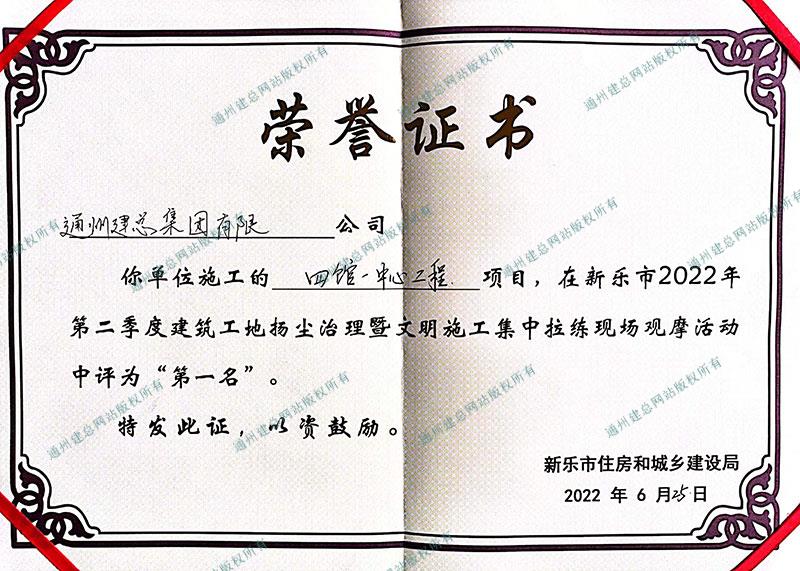 荣誉证书
通州建总集团有限公司
你单位施工的 四馆一中心工程 项目，在新乐市2022年
第二季度建筑工地扬尘治理暨文明施工集中拉练现场观摩活动
中评为“第一名”。
特发此证，以资鼓励。
新乐市住房和城乡建设局
2022 年 6 月25日
通州建总网站版权所有
通州建总网站版权所有
通州建总网站版权所有
通州建总网站版权所有
通州建总网站版权所有
通州建总网站版权所有
通州建总网站版权所有
通州建总网站版权所有
通州建总网站版权所有
通州建总网站版权所有
通州建总网站版权所有